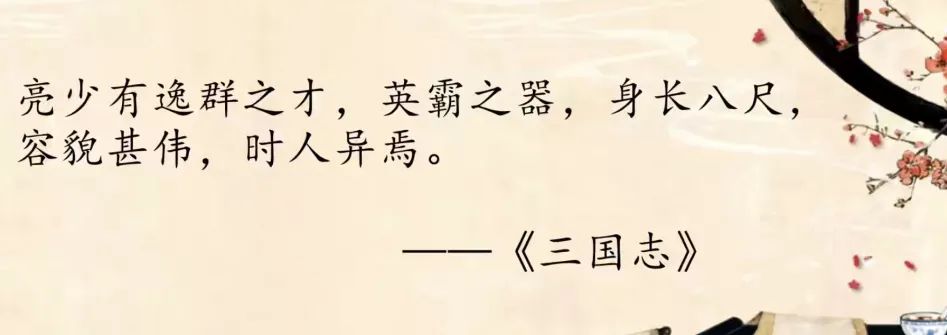 亮少有逸群之才，英霸之器，身长八尺，
容貌甚伟，时人异焉。
——《三国志》